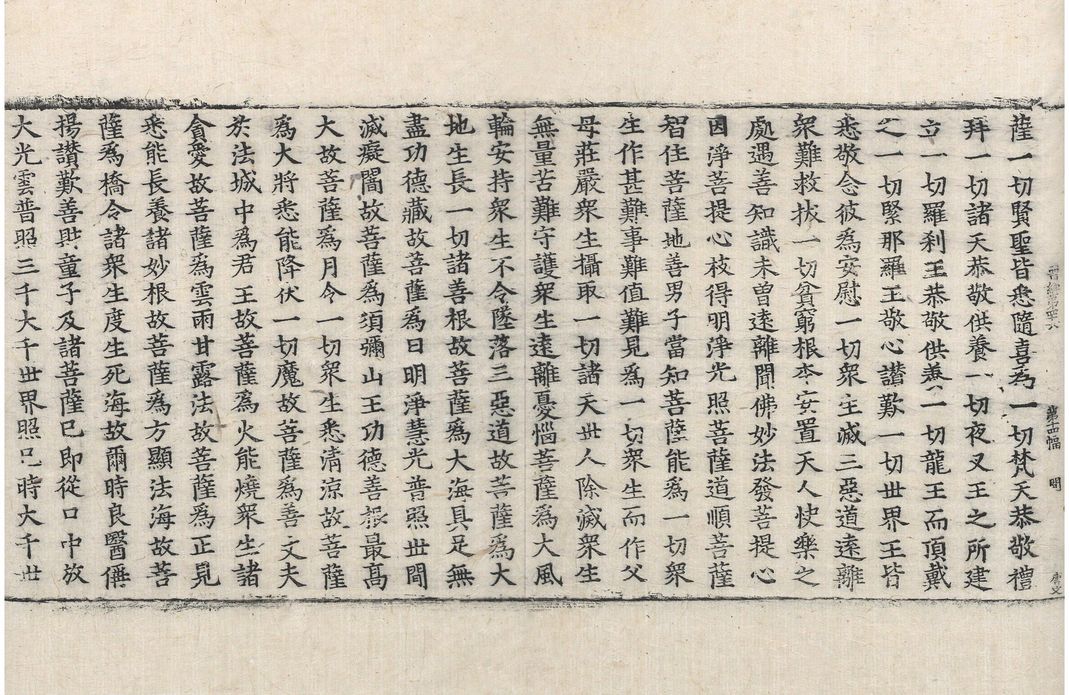 晉經第四十六 第十四幅
薩一切賢聖皆悉隨喜為一切梵天恭敬禮
拜一切諸天恭敬供養一切夜叉王之所建
立一切羅刹王恭敬供養一切龍王而頂戴
之一切緊那羅王敬心讃歎一切世界王皆
悉敬念彼為安慰一切衆生滅三惡道遠離
衆難救拔一切貧窮根本安置天人快樂之
處遇善知識未曾遠離聞佛妙法發菩提心
因淨菩提心枝得明淨光照菩薩道順菩薩
智住菩薩地善男子當知菩薩能為一切衆
生作甚難事難值難見為一切衆生而作父
母莊嚴衆生攝取一切諸天世人除滅衆生
無量苦難守護衆生遠離憂惱菩薩為大風
輪安持衆生不令墜落三惡道故菩薩為大
地生長一切諸善根故菩薩為大海具足無
盡功德藏故菩薩為日明淨慧光普照世間
滅癡闇故菩薩為須彌山王功德善根最高
大故菩薩為月令一切衆生悉清涼故菩薩
為大將悉能降伏一切魔故菩薩為善丈夫
於法城中為君王故菩薩為火能燒衆生諸
貪愛故菩薩為雲雨甘露法故菩薩為正見
悉能長養諸妙根故菩薩為方顯法海故菩
薩為橋令諸衆生度生死海故爾時良醫偁
揚讃歎善財童子及諸菩薩已即從口中放
大光雲普照三千大千世界照已時大千世